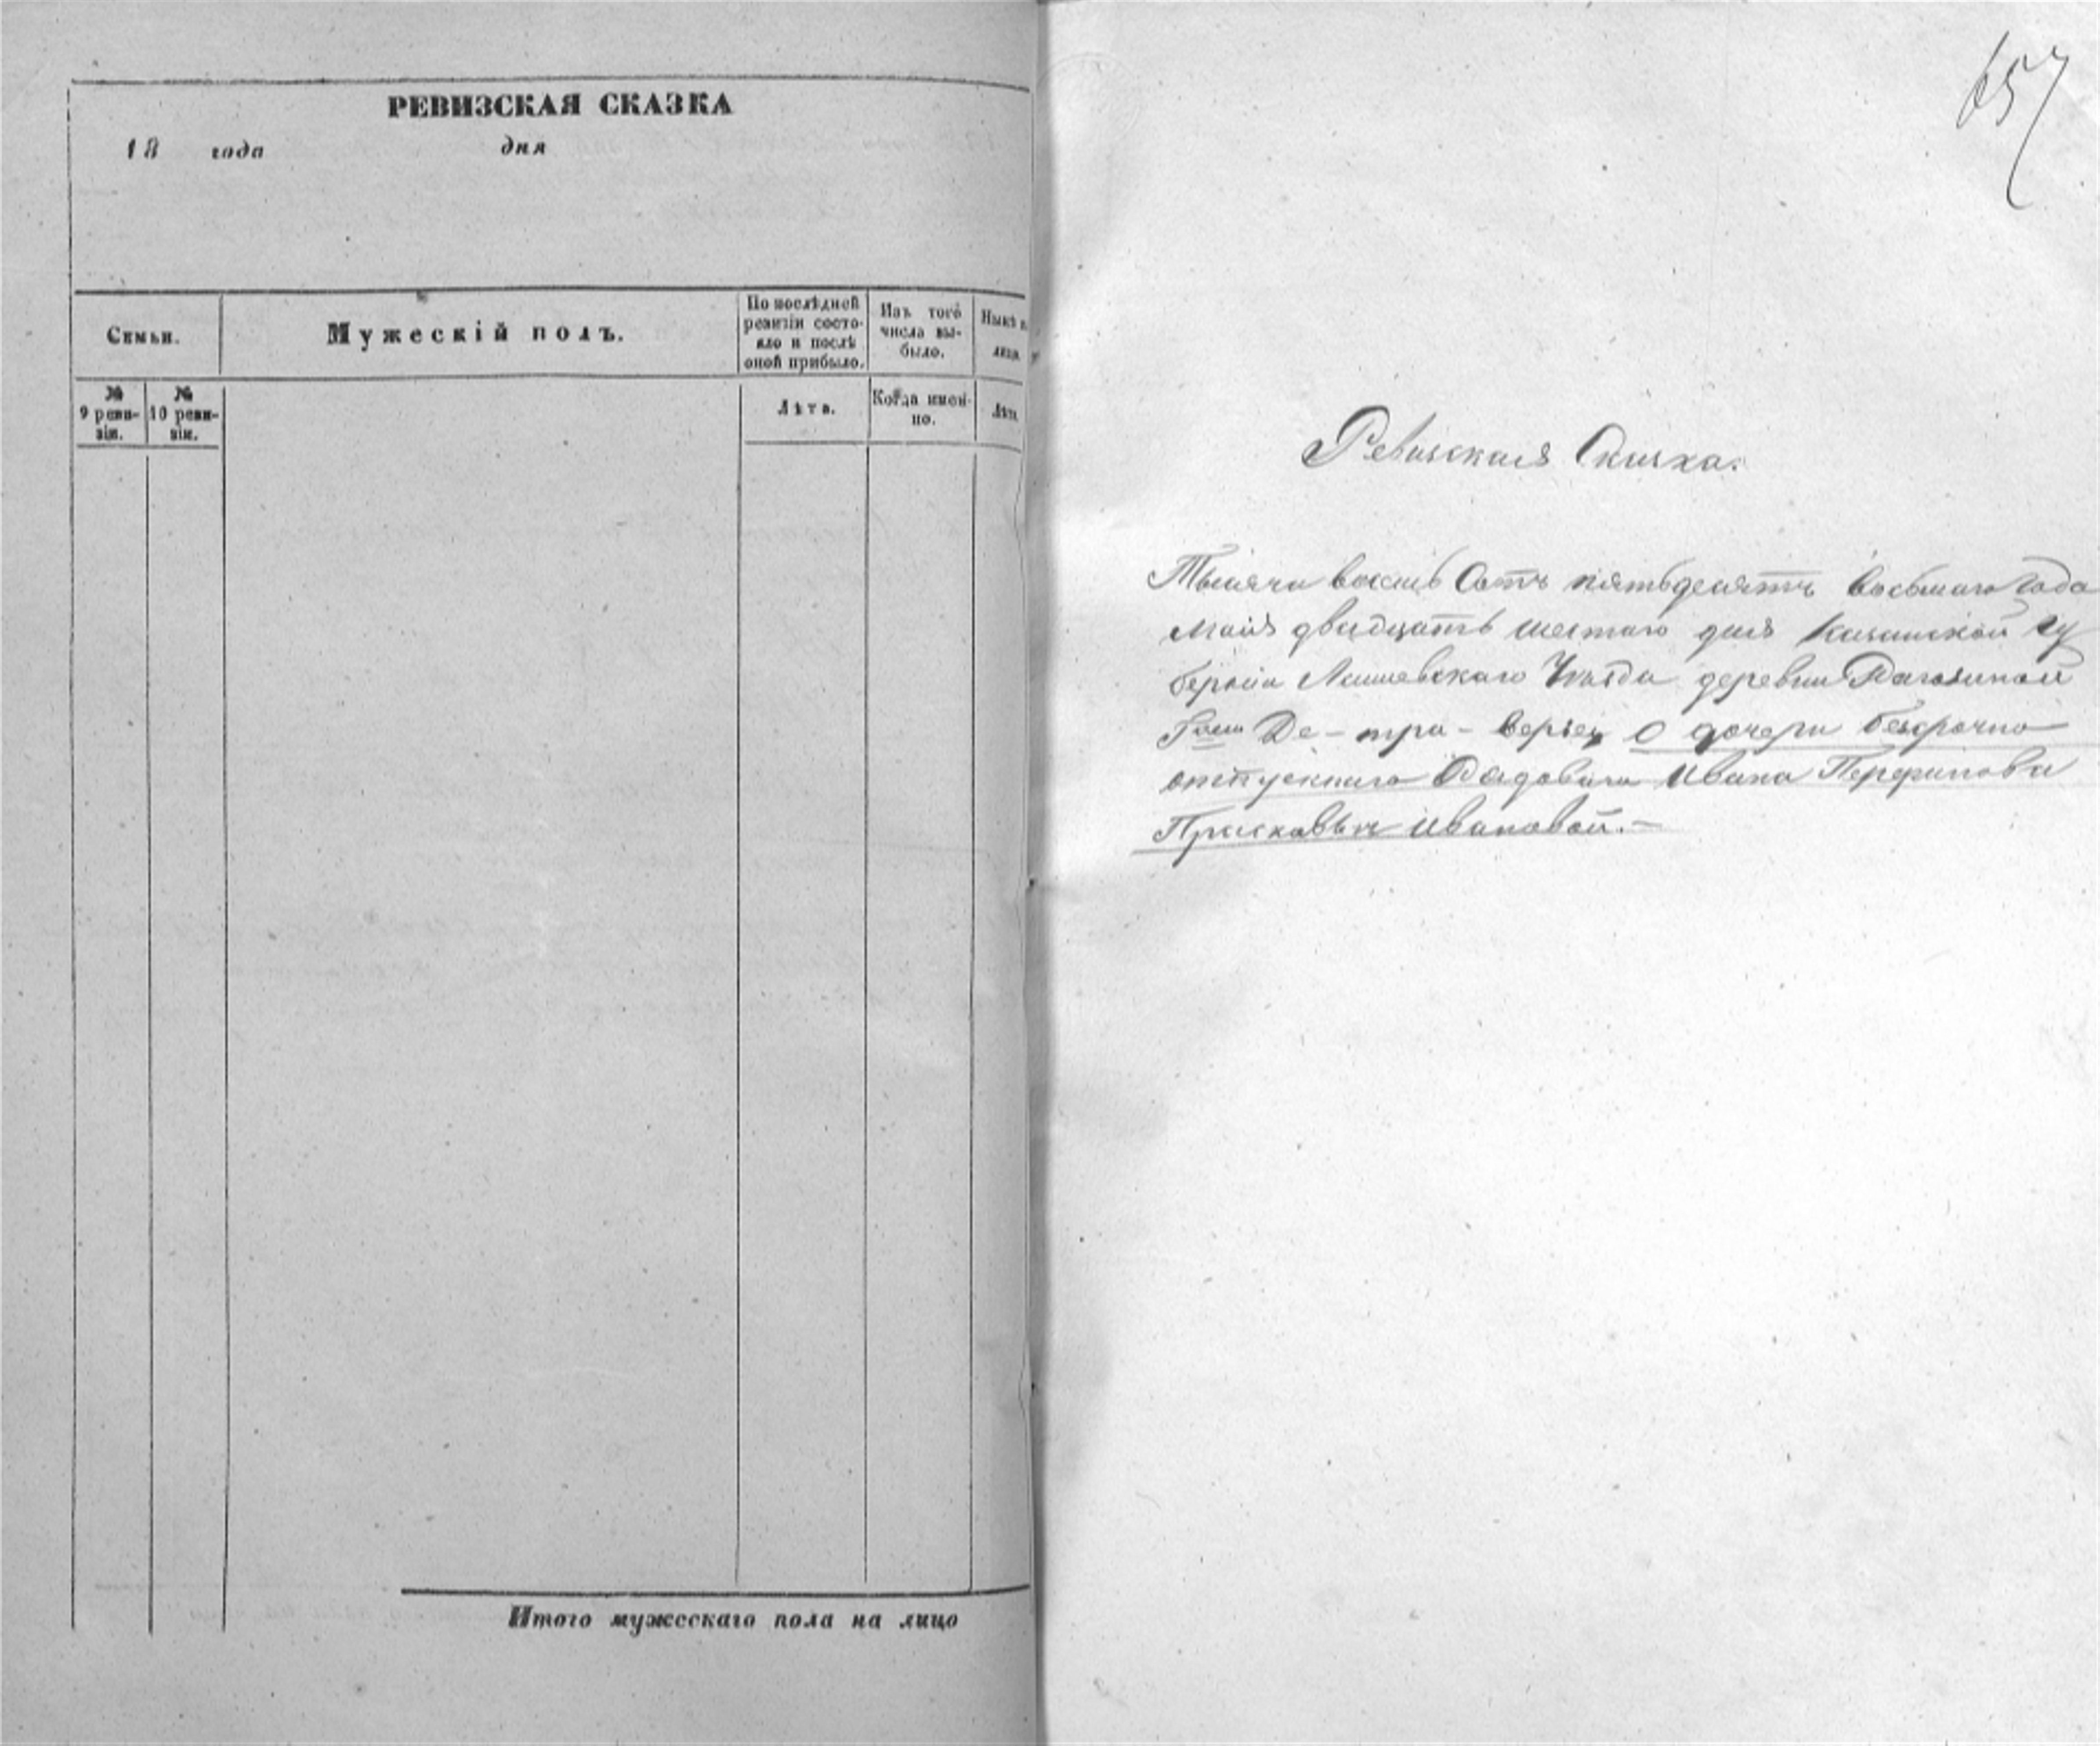 РЕВИЗСКАЯ СКАЗКА
18 года дня
Семьи.
Мужескій полъ.
По послѣдней
ревизіи состо-
яло и послѣ
оной прибыло.
Изъ того
числа вы-
было.
Нынѣ н
лицо.
№
9 реви-
зіи.
№
10 реви-
зіи.
Лѣта.
Когда имен-
но.
Лѣта.
Итого мужескаго пола на лицо
657
Ревизская Сказка.
Тысяча восемь Сотъ пятьдесятъ восьмаго Года
Маія двадцать шестаго дня Казанской гу
берніи Лаишевскаго Уѣзда деревни
Де-тра-версе, О дочери безсрочно
отпускнаго Рядоваго Ивана Перфилова
Прасковьи Ивановой.-